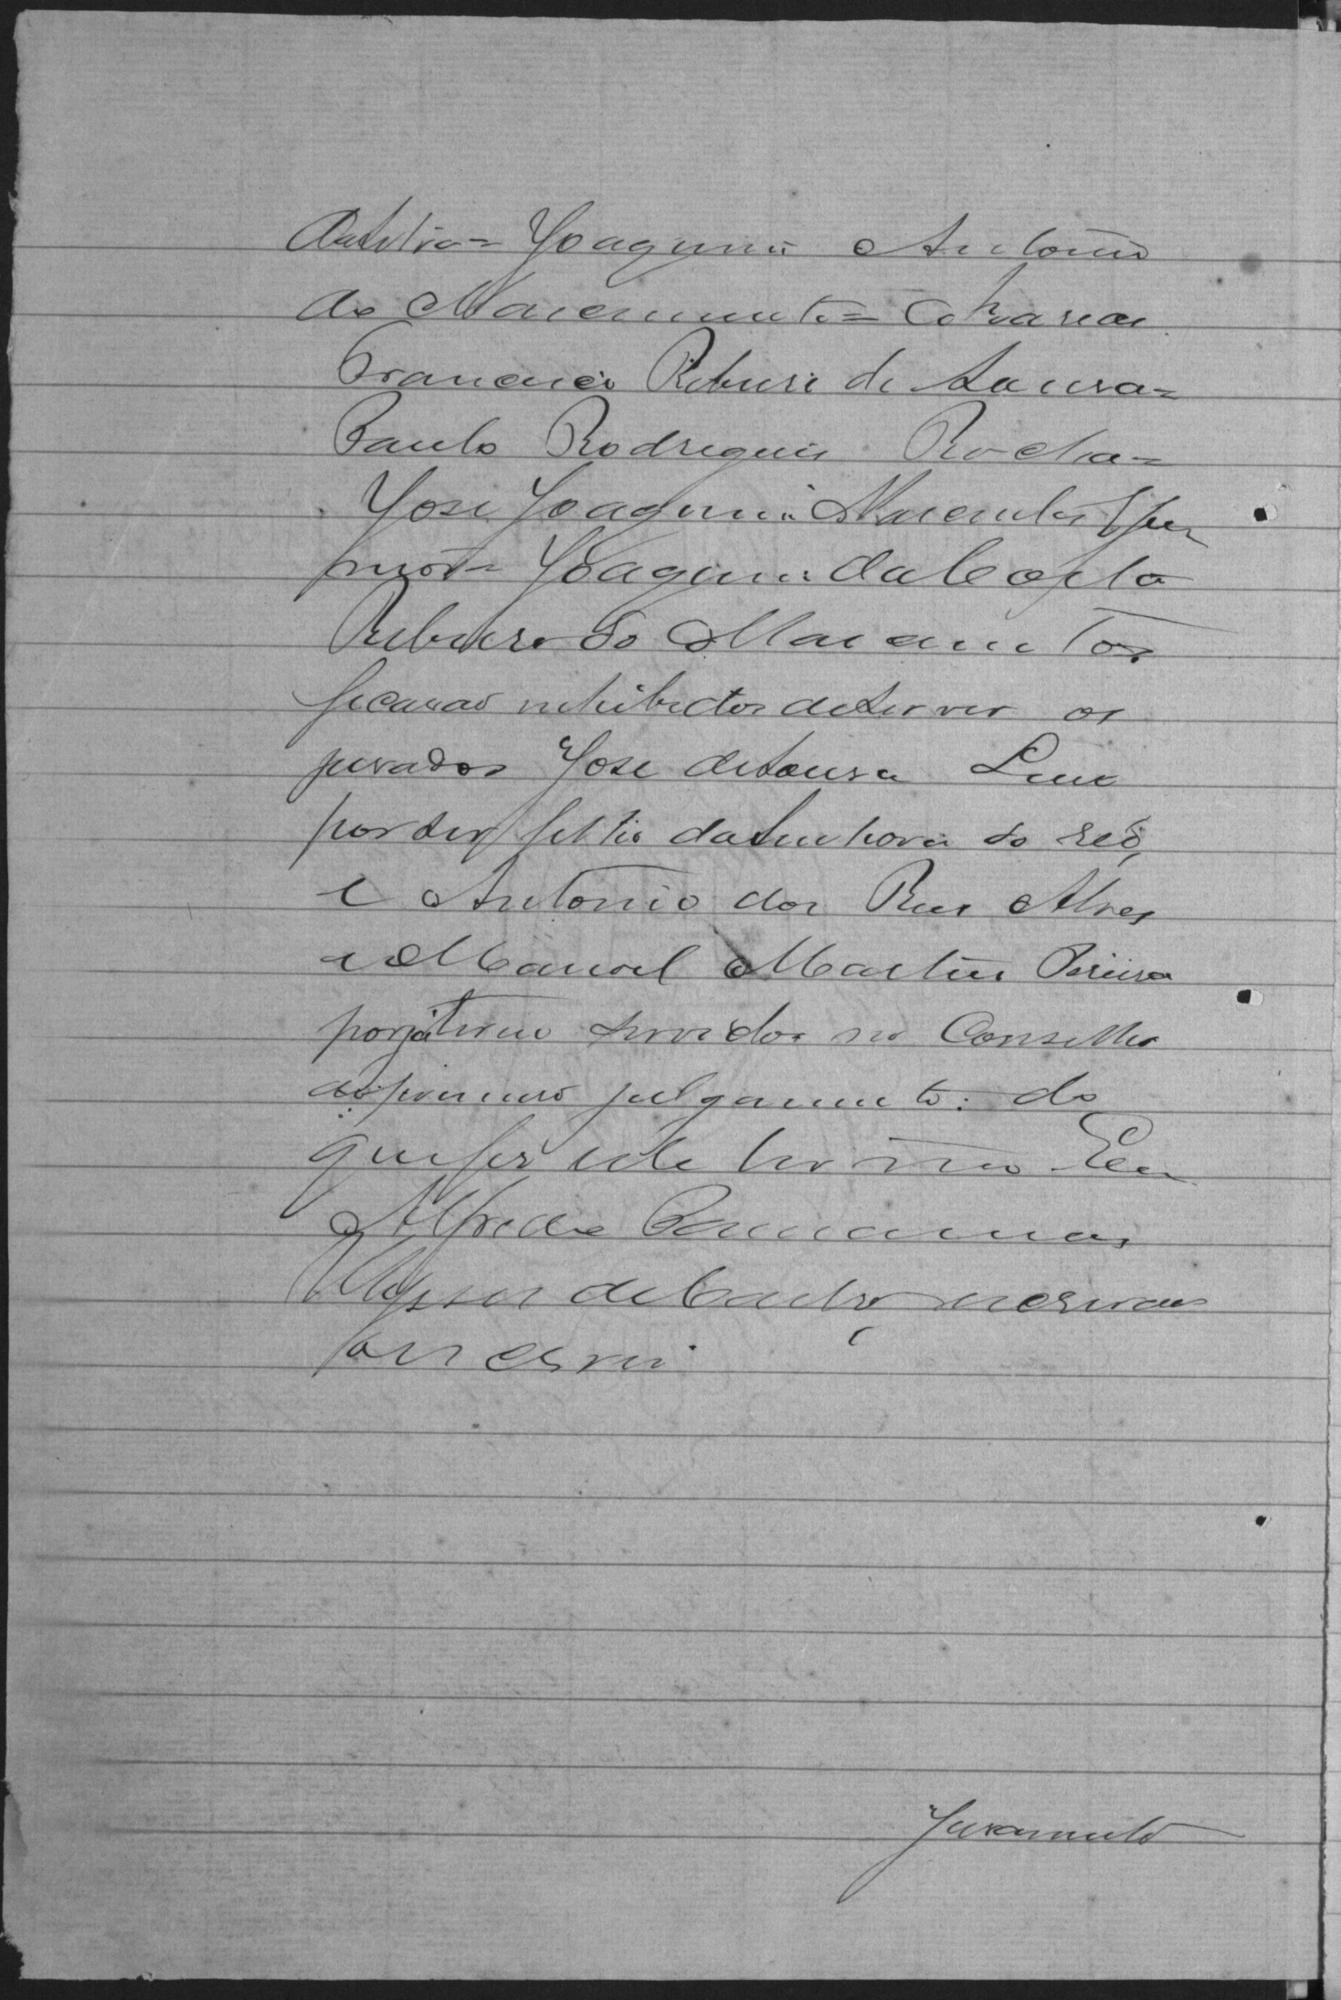 Joaquim Antonio
do Nascimento =
Francisco Ribeiro de Sousa =
Paulo Rodrigues Rocha =
José Joaquim
Joaquim da Costa
Ribeiro do Nascimento
ficarão inhibidos de servir os
jurados José de Sousa Lima
por ser filho da senhora do reo,
e Antonio dos Reis Alves
e Manoel Martins Pereira
por já terem servidos no Conselho
do primeiro julgamento: do
que fiz este termo Eu
Alfredo
de Castro, escrivão
escrevi.
Juramento